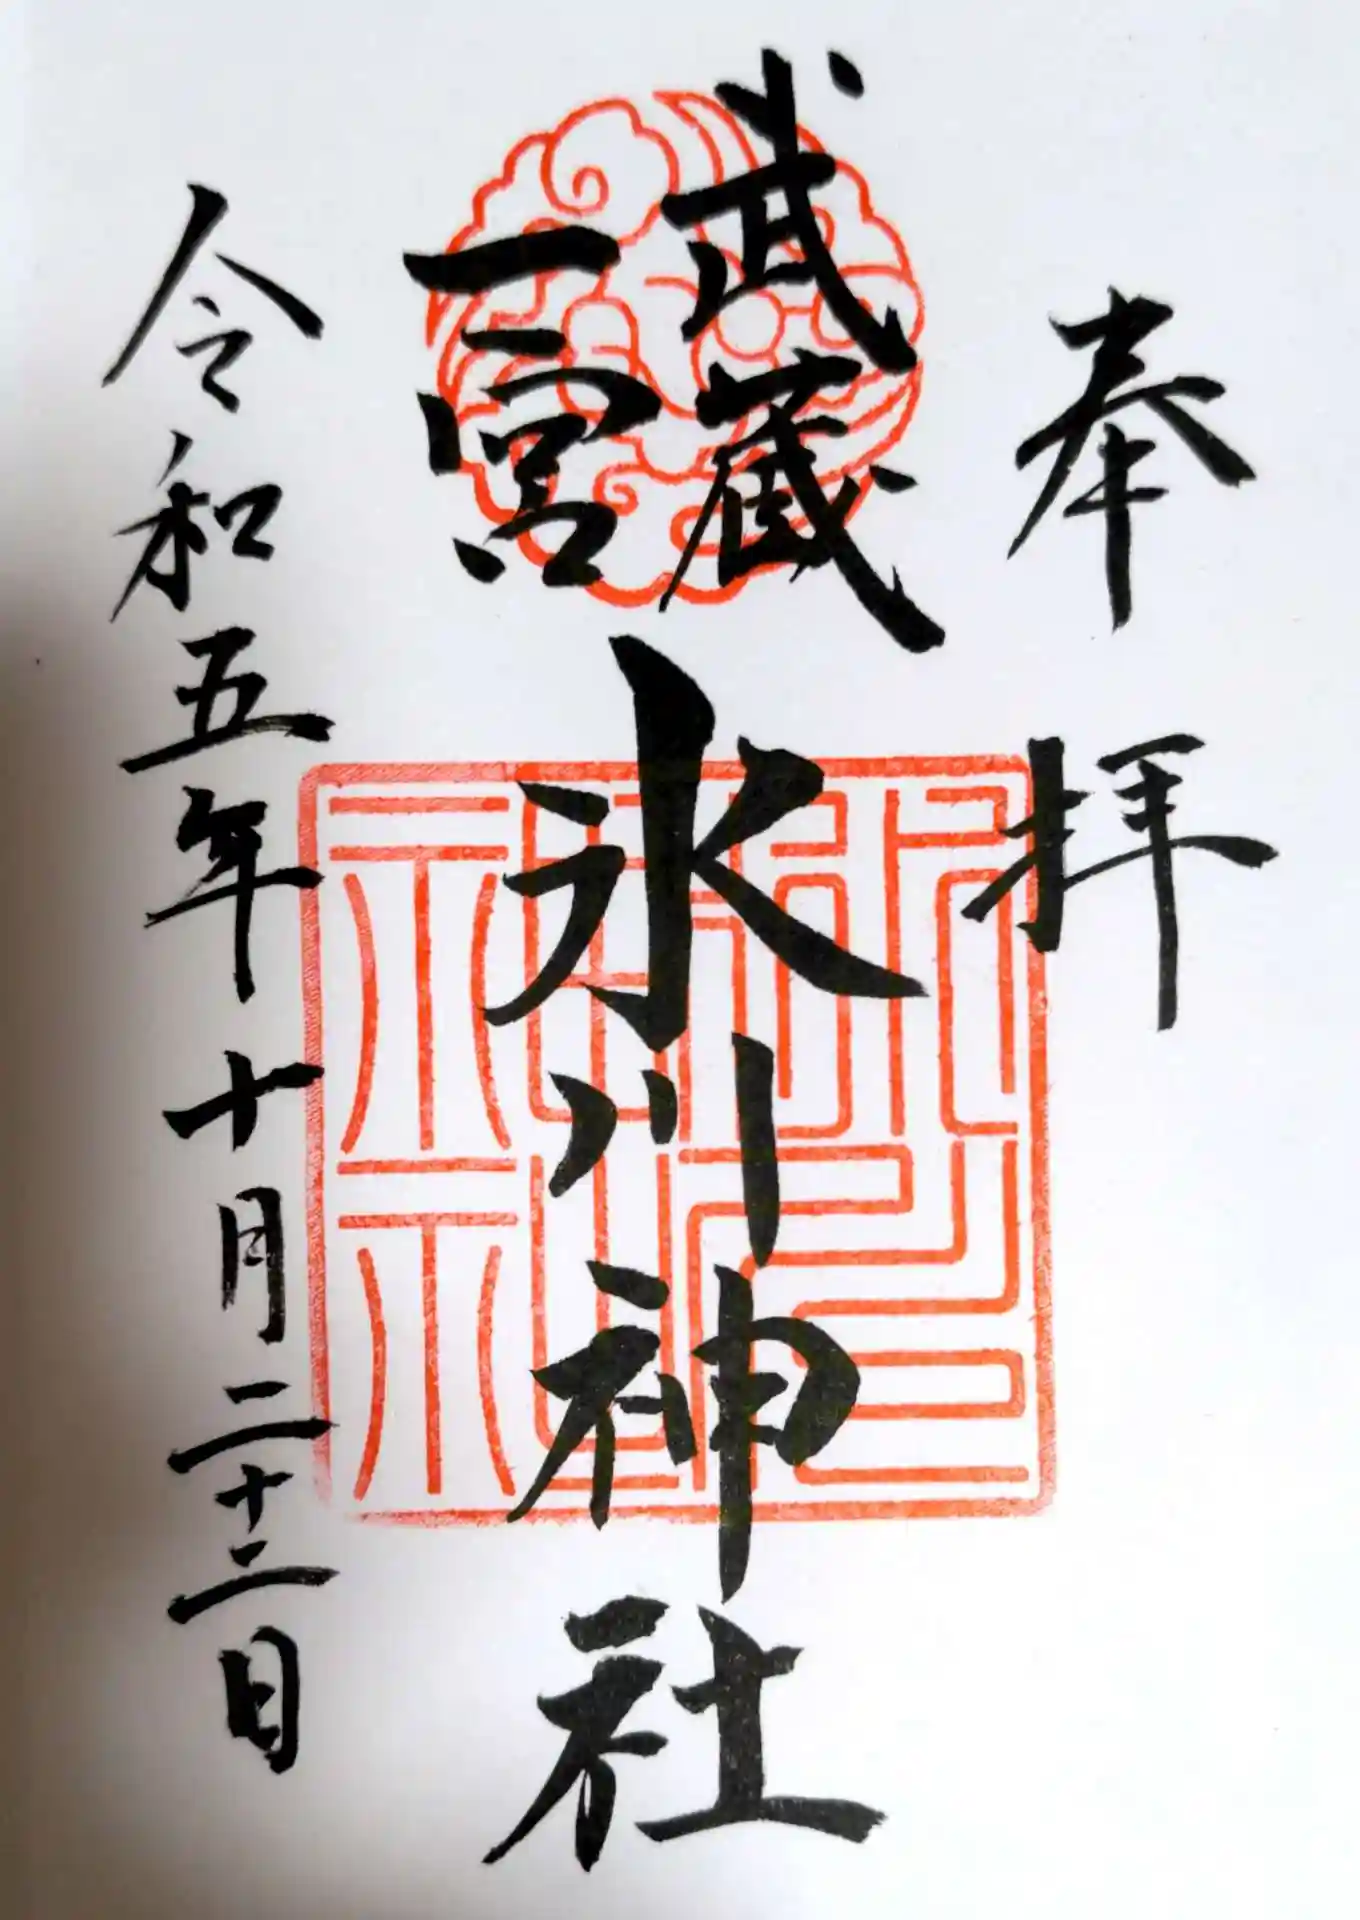 奉拝
武蔵
一宮
氷川神社
令和五年十月二十二日